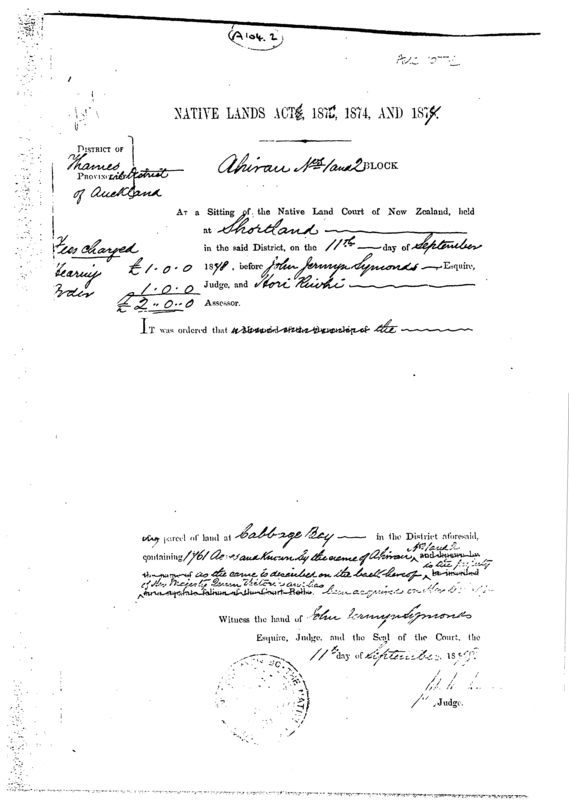 A 104. 2
NATIVE LANDS ACT, 1873, 1874, AND 1878.
DISTRICT OF
Thames
PROVINCIAL District
of Auckland
Ahirau Nos 1 and 2 BLOCK
AT a Sitting of the Native Land Court of New Zealand, held
at Shortland
in the said District, on the 11th day of September
1878, before John Jermyn Symonds Esquire,
Judge, and Hori Riwhi
Assessor.
Fees charged
Hearing £1.0.0
Order 1.0.0
£2.0.0
IT was ordered that the
parcel of land at Cabbage Bay in the District aforesaid,
containing 1761 Acres and known by the name of Ahirau Nos 1 and 2
as the same is described on the back hereof is the property
of Her Majesty Queen Victoria
been acquired
Witness the hand of John Jermyn Symonds
Esquire, Judge, and the Seal of the Court, the
11th day of September 1878
Judge.
THE NATIV